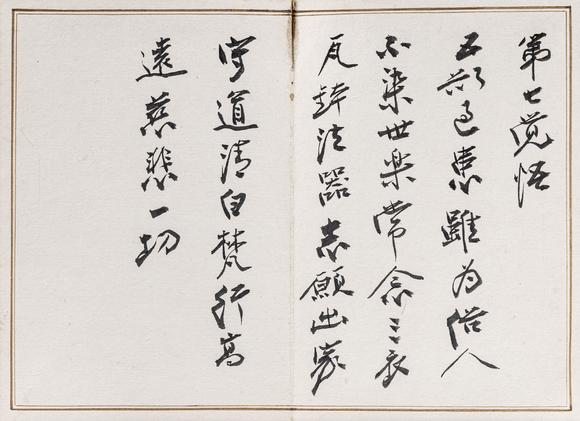 第七觉悟
五欲过患虽为俗人
不染世楽常念三衣
瓦鉢法器志願出家
守道清白梵行高
遠慈悲一切